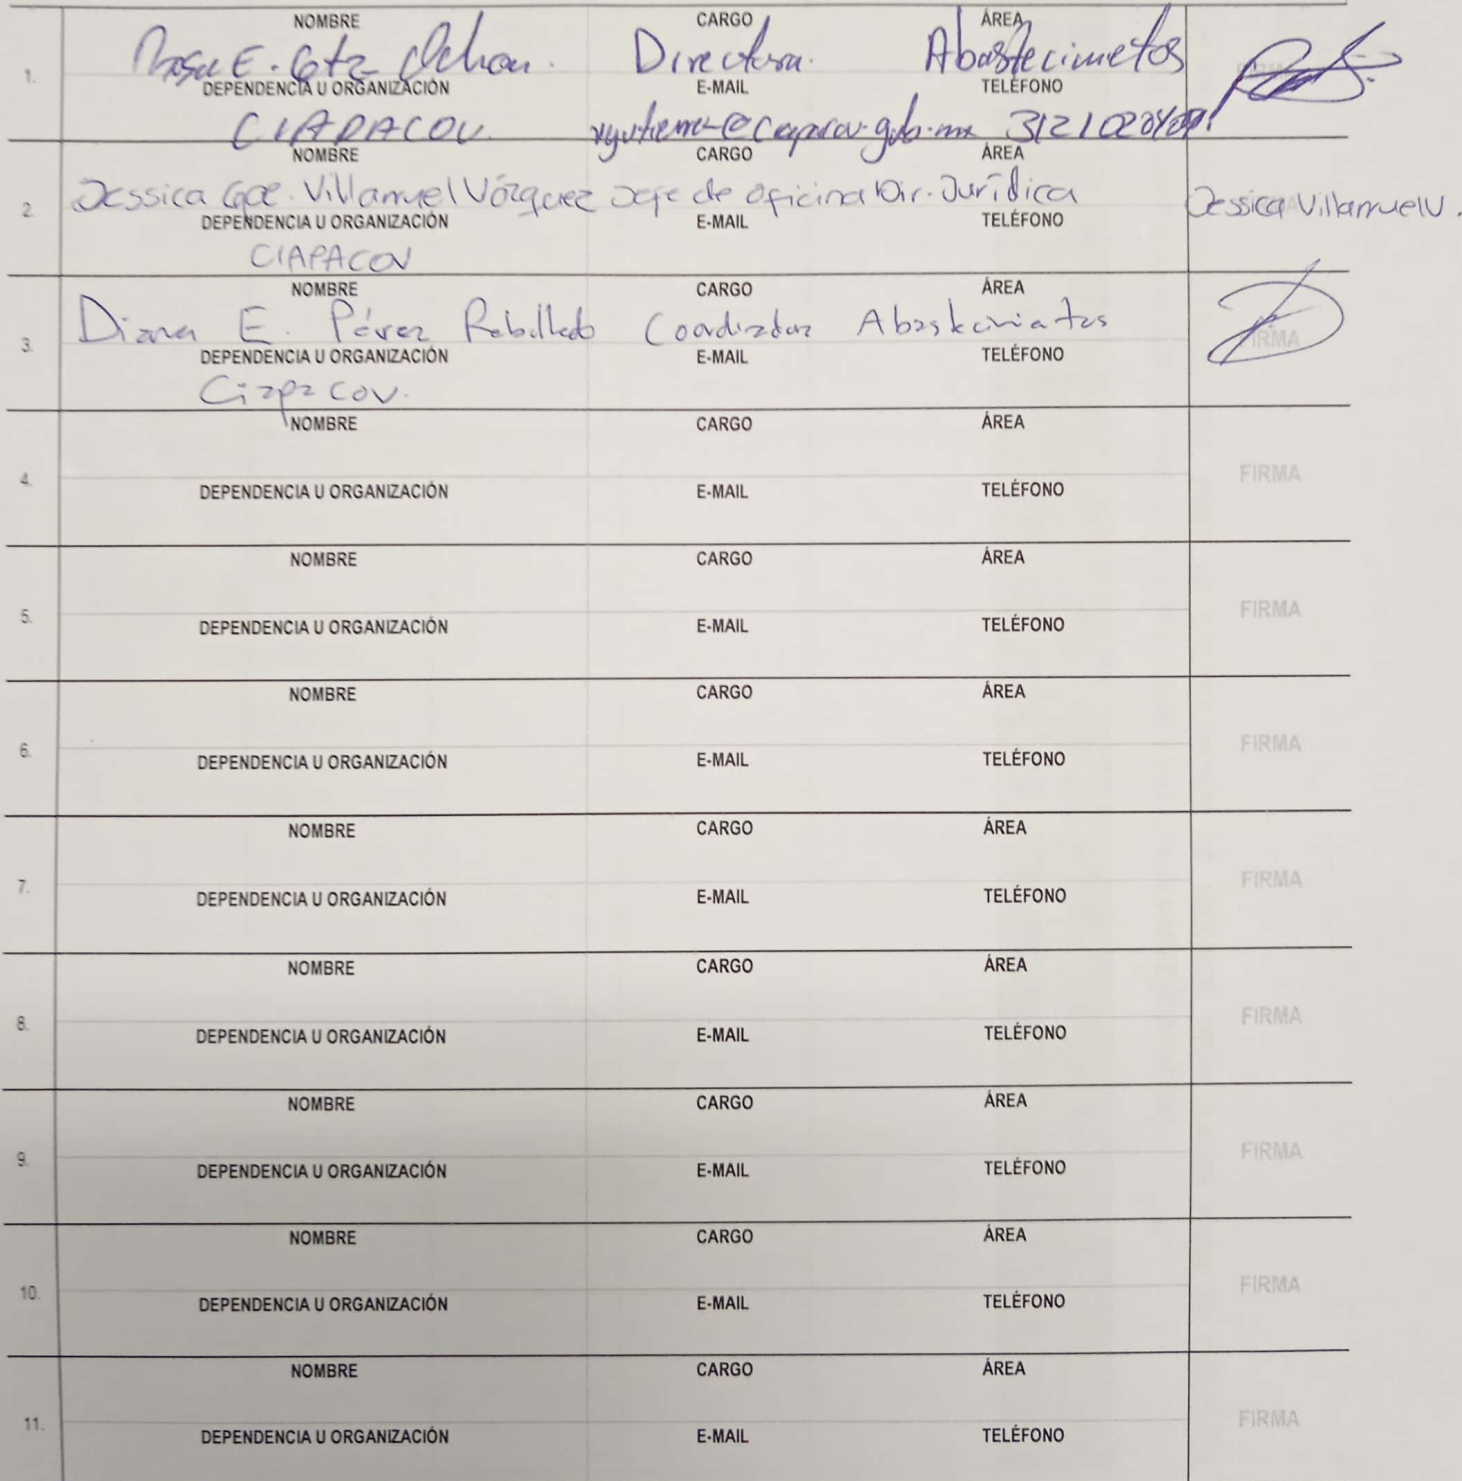 NOMBRE CARGO ÁREA
1. Rosa E. Gtz Ochoa. Directora. Abastecimietos
DEPENDENCIA U ORGANIZACIÓN E-MAIL TELÉFONO
CIAPACOV
NOMBRE CARGO ÁREA
2. Jessica Gpe. Villarruel Vázquez Jefe de oficina Dir. Jurídica Jessica Villarruel V.
DEPENDENCIA U ORGANIZACIÓN E-MAIL TELÉFONO
CIAPACOV
NOMBRE CARGO ÁREA
3. Diana E. Pérez Rebolledo Coordinadora Abastecimiatos
DEPENDENCIA U ORGANIZACIÓN E-MAIL TELÉFONO
Ciapacov.
NOMBRE CARGO ÁREA
4. FIRMA
DEPENDENCIA U ORGANIZACIÓN E-MAIL TELÉFONO
NOMBRE CARGO ÁREA
5. FIRMA
DEPENDENCIA U ORGANIZACIÓN E-MAIL TELÉFONO
NOMBRE CARGO ÁREA
6. FIRMA
DEPENDENCIA U ORGANIZACIÓN E-MAIL TELÉFONO
NOMBRE CARGO ÁREA
7. FIRMA
DEPENDENCIA U ORGANIZACIÓN E-MAIL TELÉFONO
NOMBRE CARGO ÁREA
8. FIRMA
DEPENDENCIA U ORGANIZACIÓN E-MAIL TELÉFONO
NOMBRE CARGO ÁREA
9. FIRMA
DEPENDENCIA U ORGANIZACIÓN E-MAIL TELÉFONO
NOMBRE CARGO ÁREA
10. FIRMA
DEPENDENCIA U ORGANIZACIÓN E-MAIL TELÉFONO
NOMBRE CARGO ÁREA
11. FIRMA
DEPENDENCIA U ORGANIZACIÓN E-MAIL TELÉFONO